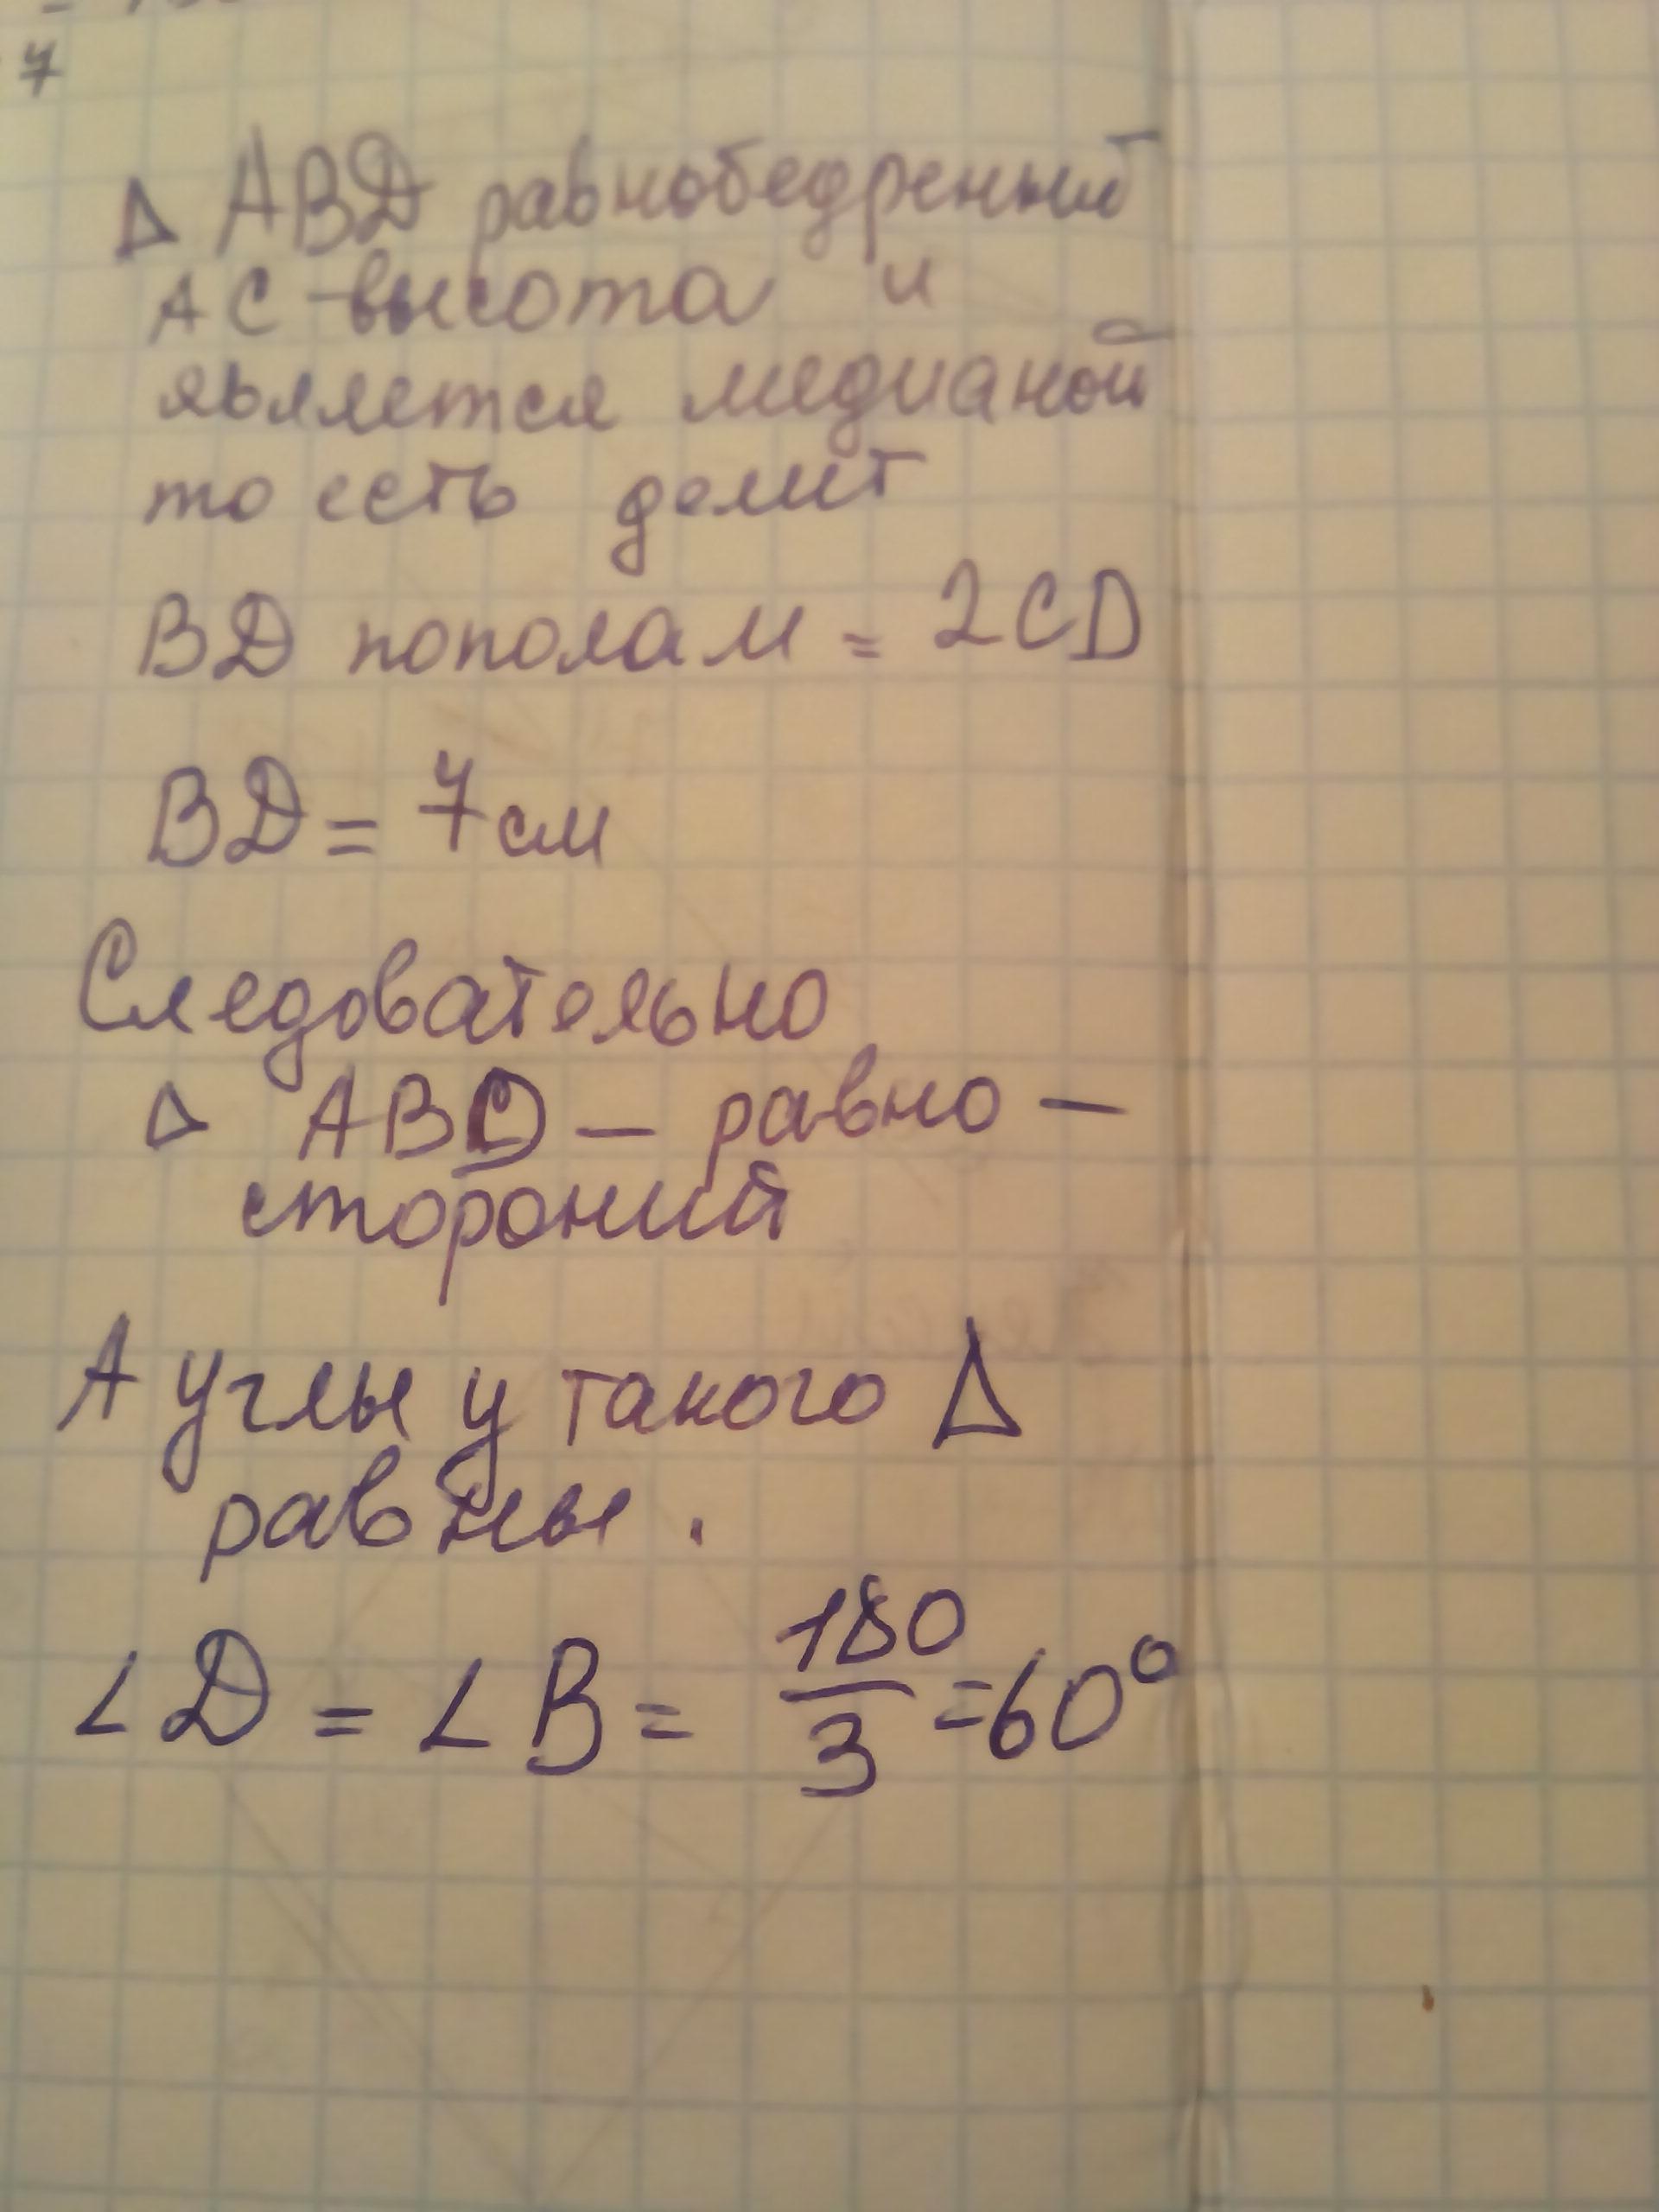 7
Δ ABD равнобедренный
AC - высота и
является медианой
то есть делит
BD пополам = 2CD
BD = 7см
Следовательно
Δ ABD — равно —
стороний
А углы у такого Δ
равны.
∠D = ∠B = 180/3 = 60°